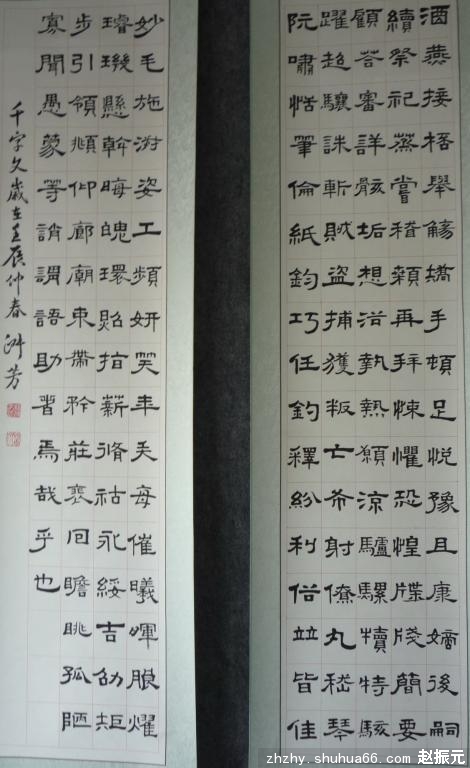 酒燕接桮舉觴矯手頓足悅豫且康嫡後嗣
續祭祀蒸嘗稽顙再拜悚懼恐惶牒牋簡要
顧荅審詳骸垢想浴執熱願涼驢騾犢特駭
躍超驤誅斬賊盜捕獲叛亡布射僚丸嵇琴
阮嘯恬筆倫紙鈞巧任釣釋紛利俗竝皆佳
妙毛施淑姿工頻妍笑年矢每催曦暉朗燿
璿璣懸斡晦魄環照指薪脩祜永綏吉劭矩
步引領頫仰廊廟束帶矜莊裵回瞻眺孤陋
寡聞愚蒙等誚謂語助者焉哉乎也
千字文歲在壬辰仲春淑芳
zhzhy.shuhua66.com 赵振元